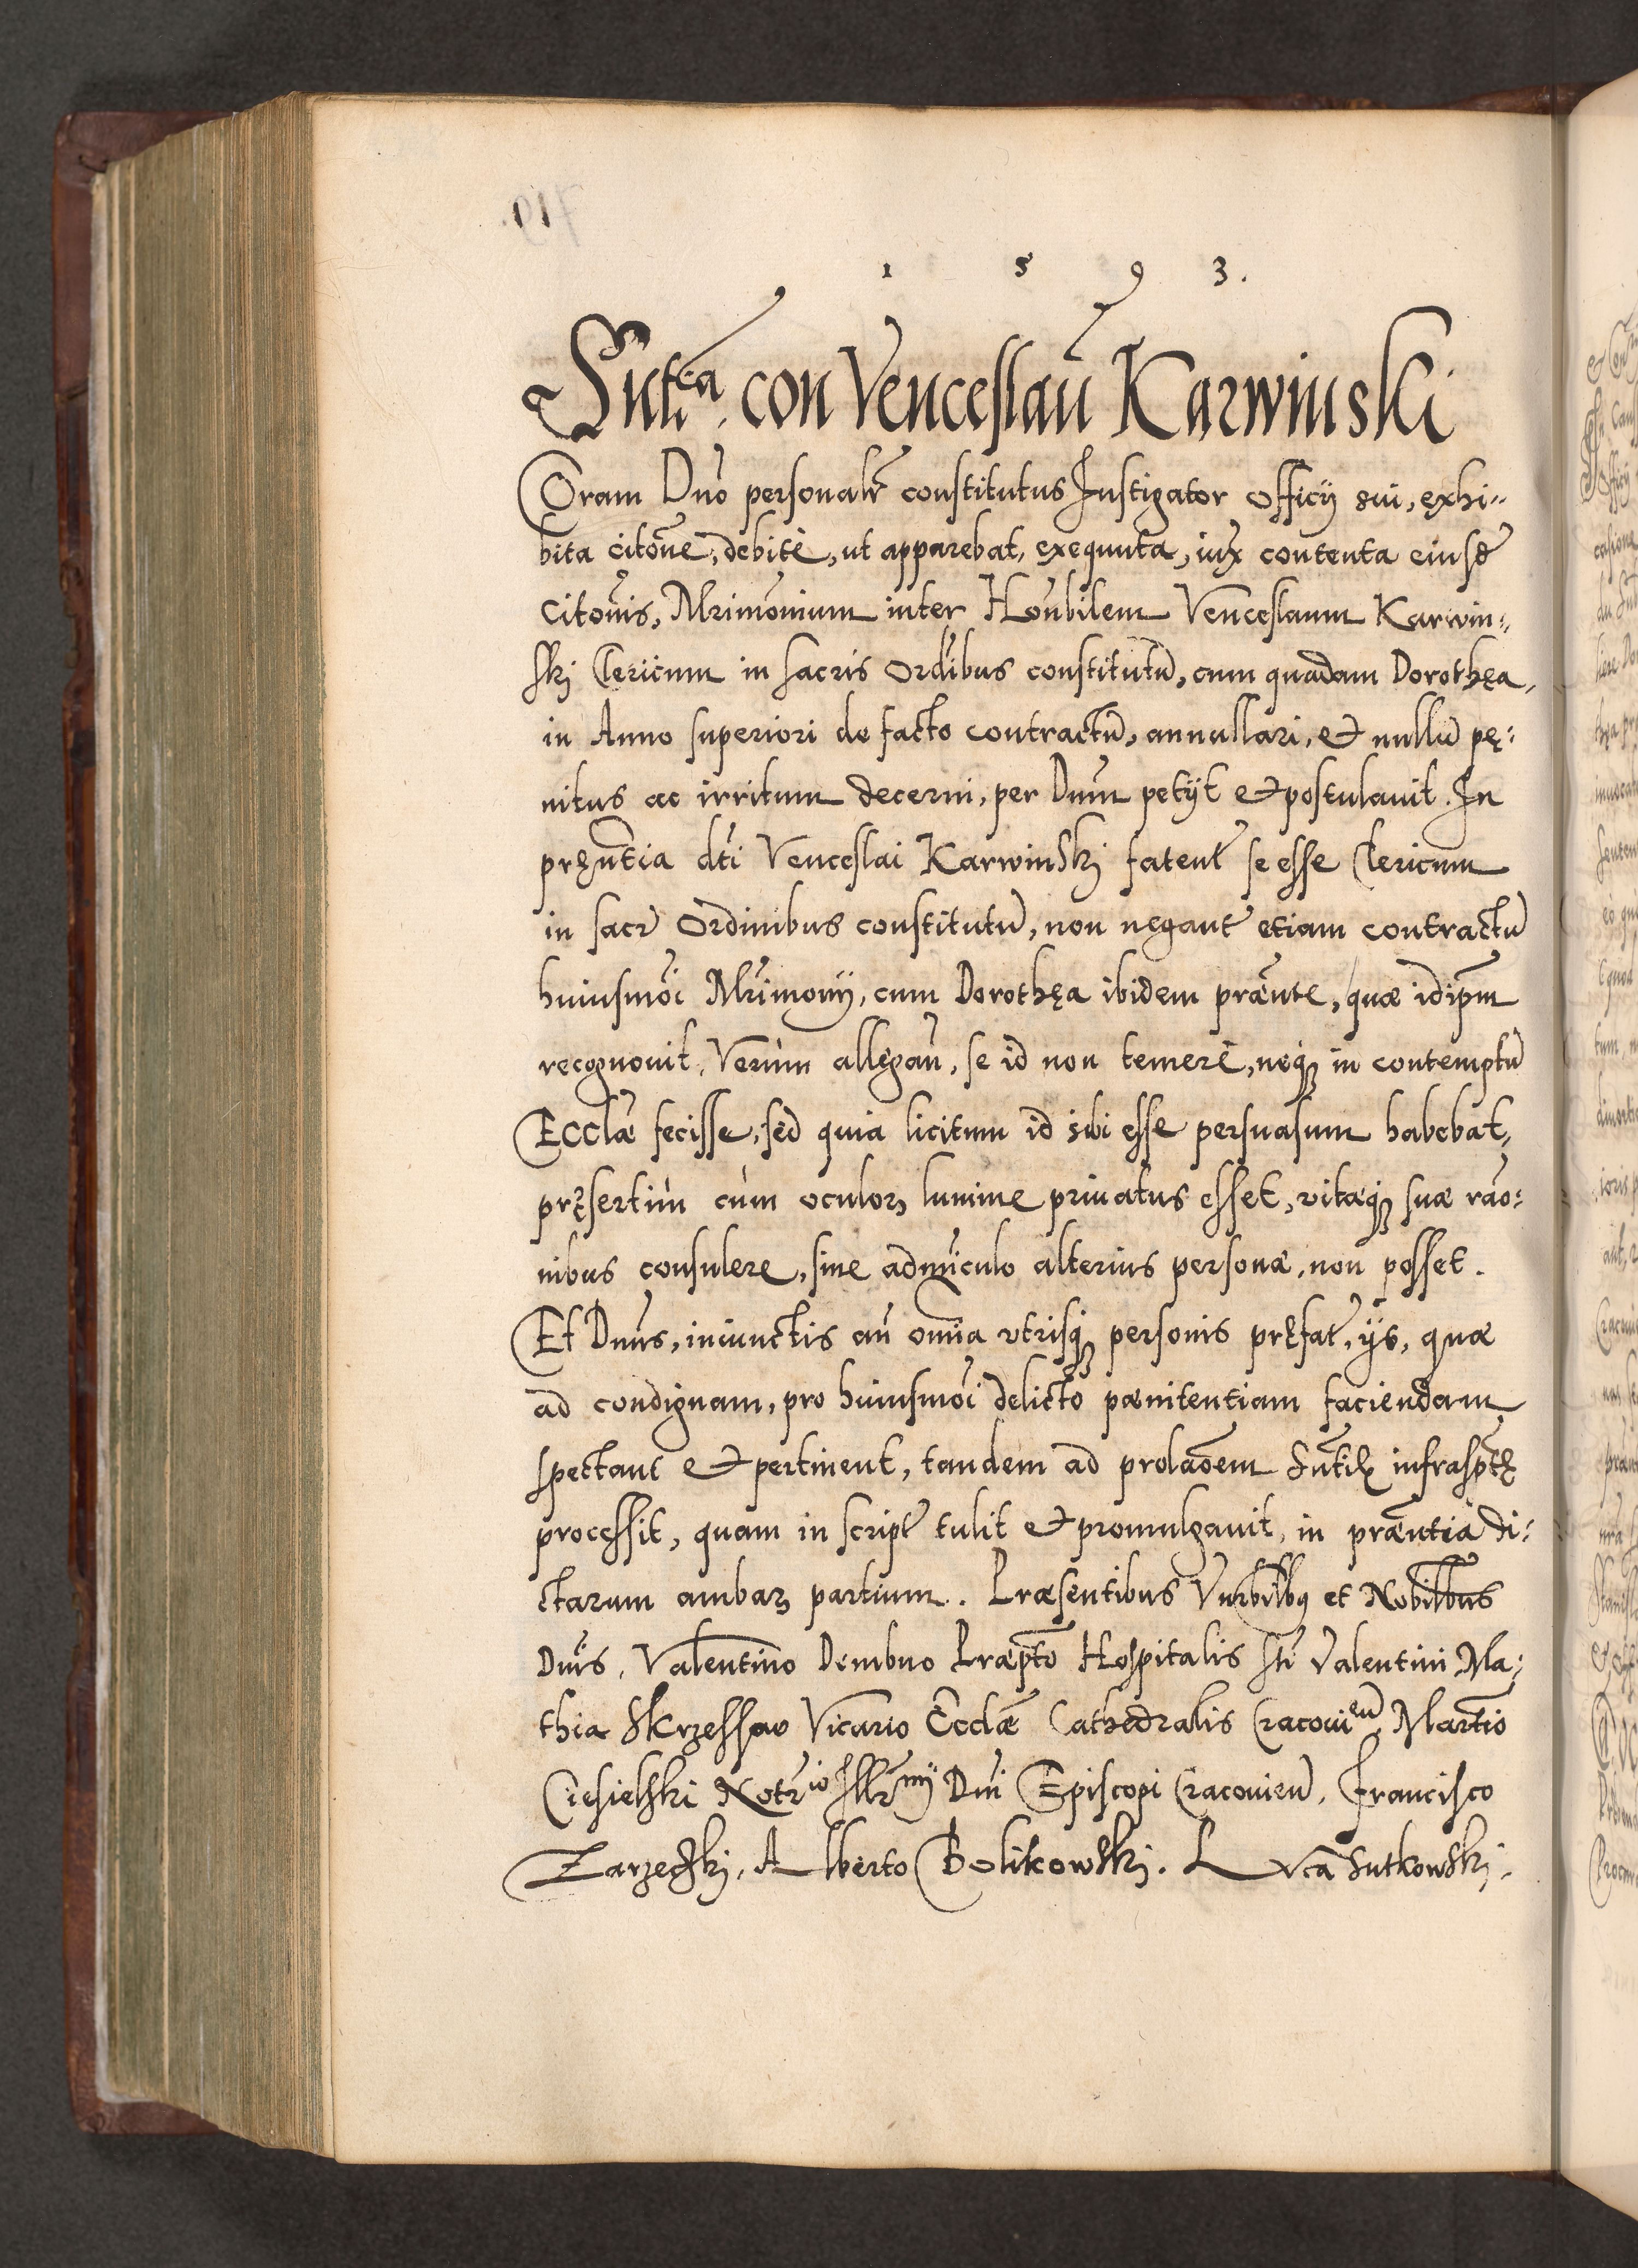 1 5 9 3.
Sntẽa. con Venceslaũ Karwinski
Coram Dño personalr̃ constitutus Instigator officÿ sui, exhi-
bita citõne, debitè, ut apparebat, exequuta, iux̃ contenta eiusd̃
Citõnis, Mr̃imonium inter Hoñbilem Venceslaum Karwin-
skj Clericum in sacris Ordĩbus constitutũ, cum quadam Dorothęa,
in Anno superiori de facto contractũ, annullari, et nullũ pę-
nitus ac irritum decerni, per Dnũm petÿt et postulavit. In
pręñtia dc̃ti Venceslai Karwinskj fatent̃ se esse Clericum
in sacr̃ Ordinibus constitutũ, non negant̃ etiam contractũ
huiusmõi Mr̃imonÿ, cum Dorothęa ibidem præñte, quæ idip̃m
recognovit, Verùm allegañ, se id non temerè, neqʒ in contemptũ
Eccl̃æ fecisse, sed quia licitum id sibi esse persuasum habebat,
pręsertim cùm oculorʒ lumine privatus esset, vitæqʒ suæ rão-
nibus consulere, sine admĩculo alterius personæ, non posset.
Et Dnũs, iniunctis añ omĩa utrisqʒ personis pręfat̃, ÿs, quæ
ad condignam, pro huiusmõi delicto pænitentiam faciendam
spectant et pertinent, tandem ad prolaõem Snt̃iæ infrasp̃tę
processit, quam in script̃ tulit et promulgavit, in præñtia di-
ctarum ambarʒ partium. Præsentibus Vnr̃bilibʒ et Nobil̃bus
Dnĩs, Valentino Dembno Præp̃to Hospitalis Sti Valentini, Ma-
thia Skrzessao Vicario Eccl̃æ Cathedralis Cracovieñ, Martĩo
Ciesielski Notr̃io Illr̃mÿ Dni Episcopi Cracovieñ, Francisco
Zarzeczkj, Alberto Bolikowskj. Luca Sutkowskj.